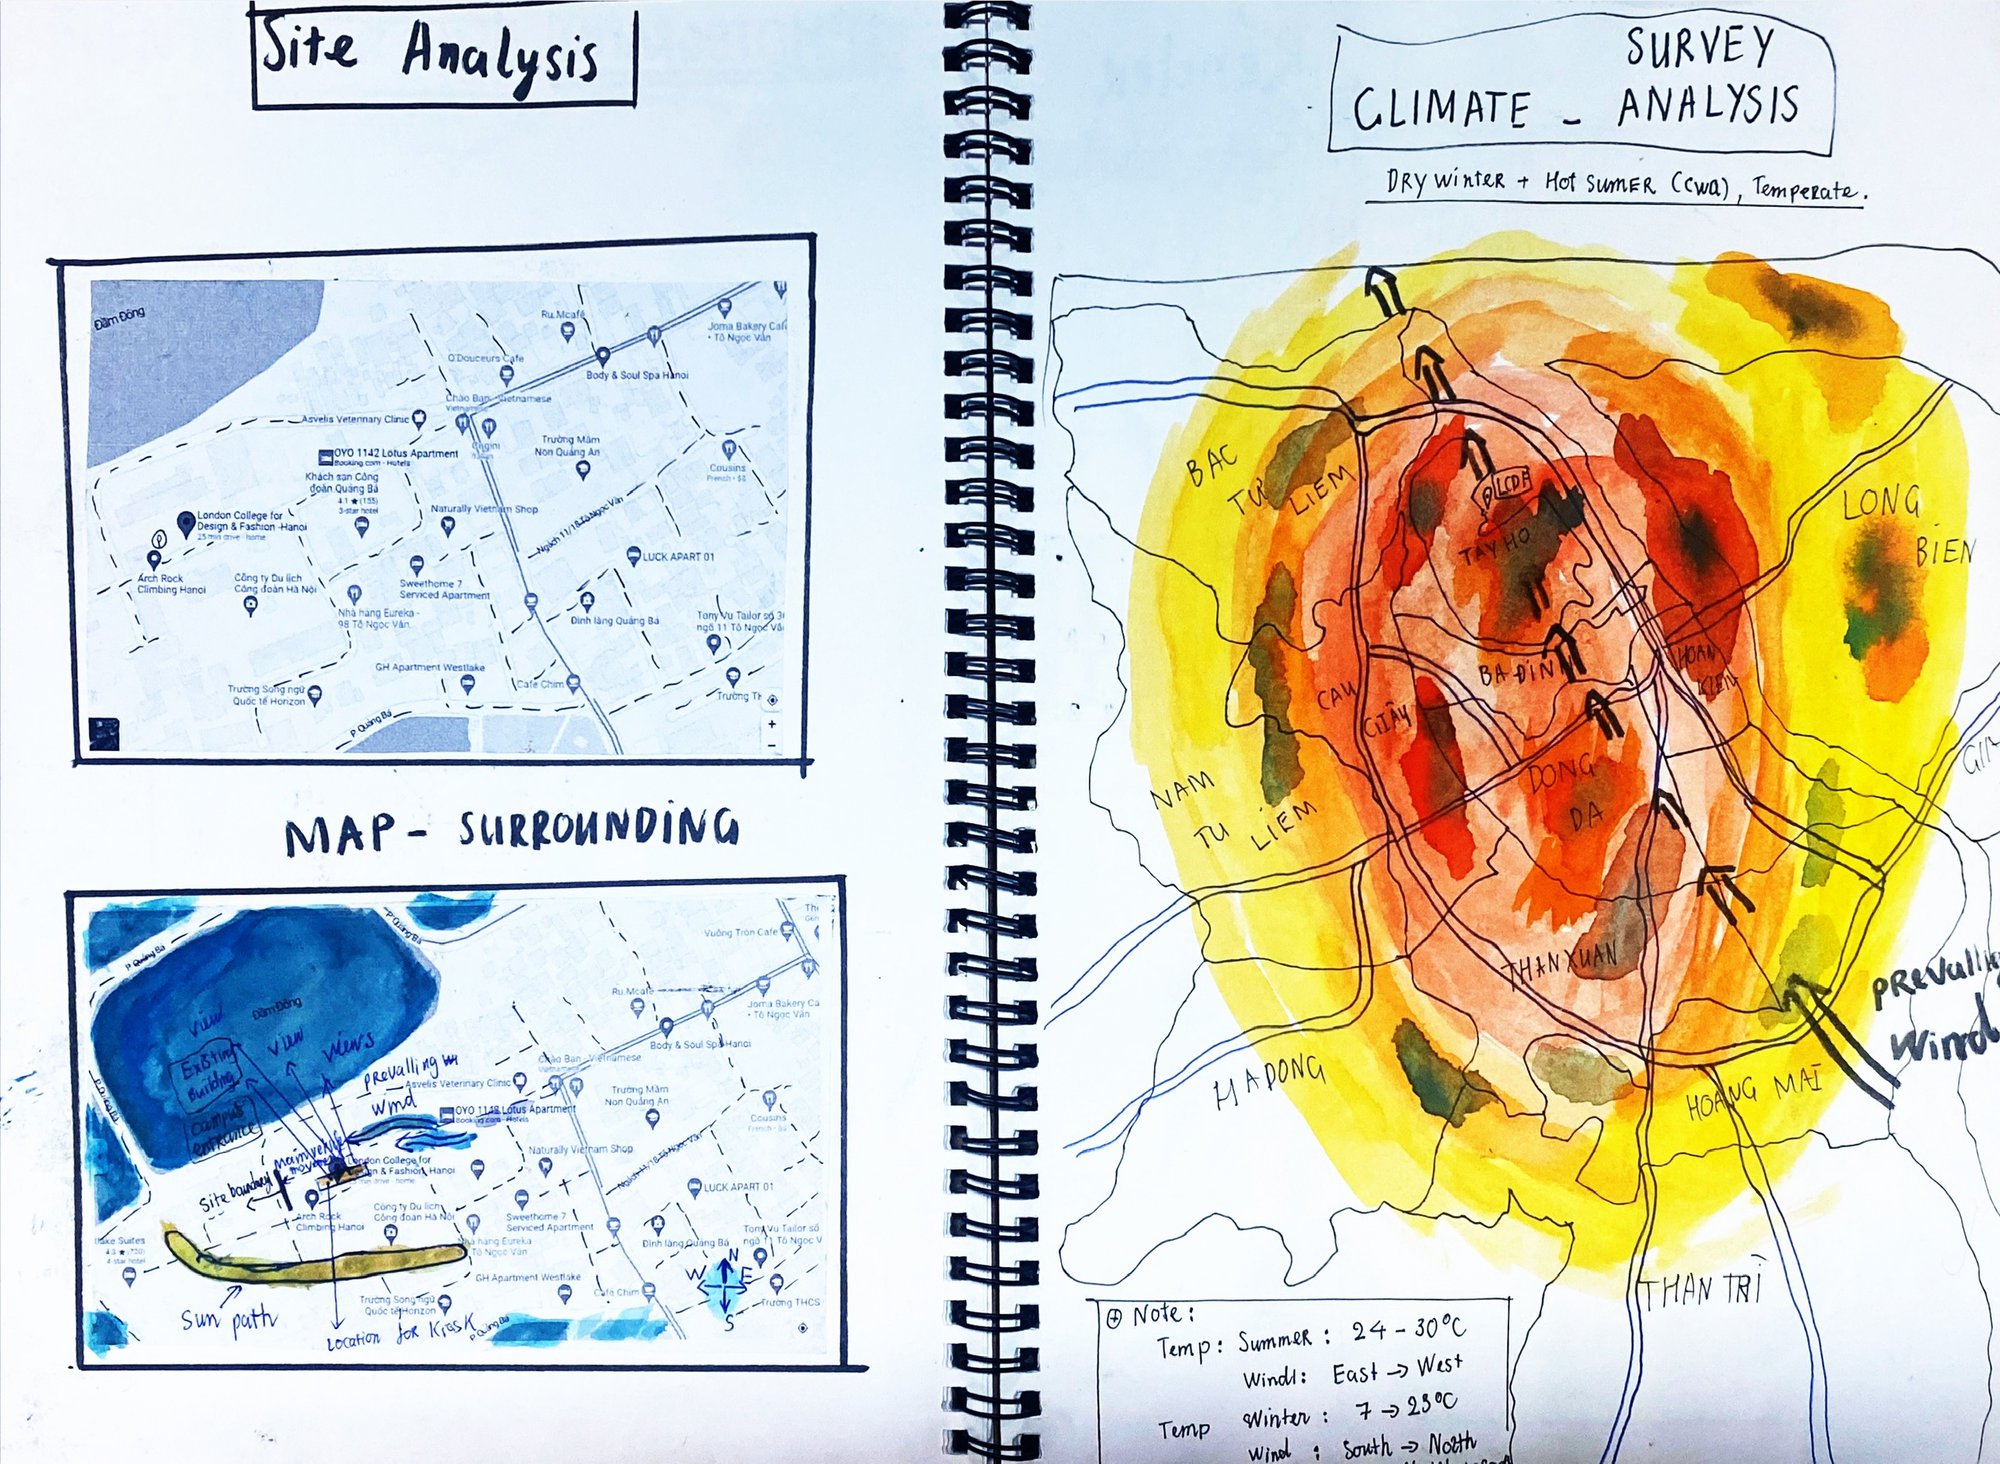 Site Analysis
Đầm Đông
Ru.Mcafé
Joma Bakery Caf
• Tô Ngọc Vân
O'Douceurs Cafe
Body & Soul Spa Hanoi
Chào Bạn - Vietnamese
Vietnamese
Asvelis Veterinary Clinic
Trường Mầm
Non Quảng An
OYO 1142 Lotus Apartment
Booking.com - Hotels
Cousins
French - $$
Khách sạn Công
đoàn Quảng Bá
4.1 ★ (155)
3-star hotel
London College for
Design & Fashion -Hanoi
25 min drive - home
Naturally Vietnam Shop
Ngách 11/18 Tô Ngọc Vân
P
Arch Rock
Climbing Hanoi
Công ty Du lịch
Công đoàn Hà Nội
Sweethome 7
Serviced Apartment
LUCK APART 01
Nhà hàng Eureka -
98 Tô Ngọc Vân
Đình làng Quảng Bá
Tony Vu Tailor số 3
ngõ 11 Tô Ngọc Vâ
GH Apartment Westlake
Cafe Chim
Trường Song ngữ
Quốc tế Horizon
Trường TH
P. Quảng Bá
MAP - SURROUNDING
P Quảng Bá
P Quảng Bá
Vuông Tròn Cafe
view
Đầm Đông
view
views
Ru.Mcafé
Joma Bakery Ca
• Tô Ngọc Vân
Existing
Building
Body & Soul Spa Hanoi
prevalling
wind
Chào Bạn - Vietnamese
Asvelis Veterinary Clinic
Trường Mầm
Non Quảng An
P Quảng Bá
campus
entrance
OYO 1142 Lotus Apartment
Cousins
French - $$
Naturally Vietnam Shop
Main vehicle
movement
London College for
Design & Fashion -Hanoi
min drive - home
Ngách 11/18 Tô Ngọc Vân
Site boundary
LUCK APART 01
Arch Rock
Climbing Hanoi
Công ty Du lịch
Công đoàn Hà Nội
Sweethome 7
Serviced Apartment
Nhà hàng Eureka
Tô Ngọc Vân
Đình làng Quảng Bá
Tony Vu Tailor số
ngõ 11 Tô Ngọc V
lake Suites
4-star hotel
N
W E
S
GH Apartment Westlake
Cafe Chim
Trường THCS
Trường Song ngữ
Quốc tế Horizon
Sun path
Location for Kiosk
P Quảng Bá
SURVEY
CLIMATE - ANALYSIS
DRY Winter + Hot SUMER (CWa), Temperate.
BAC
TU LIEM
LCDF
TAY HO
LONG
BIEN
BA ĐIN
HOAN
KIEN
CAU
GIÂY
NAM
TU LIEM
DONG
DA
THANXUAN
PREVAlliN
Wind
HA DONG
HOANG MAI
THAN TRÌ
Note:
Temp: Summer: 24 - 30°C
Wind: East → West
Temp Winter: 7 → 23°C
Wind : South → North